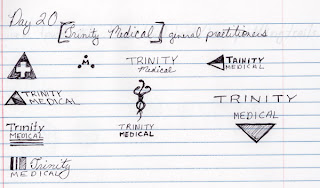 Day 20
[Trinity Medical] general practitioners
M
TRINITY
Medical
TRINITY
MEDICAL
TRINITY
MEDICAL
TRINITY
MEDICAL
TRINITY
MEDICAL
Trinity
MEDICAL
Trinity
MEDICAL